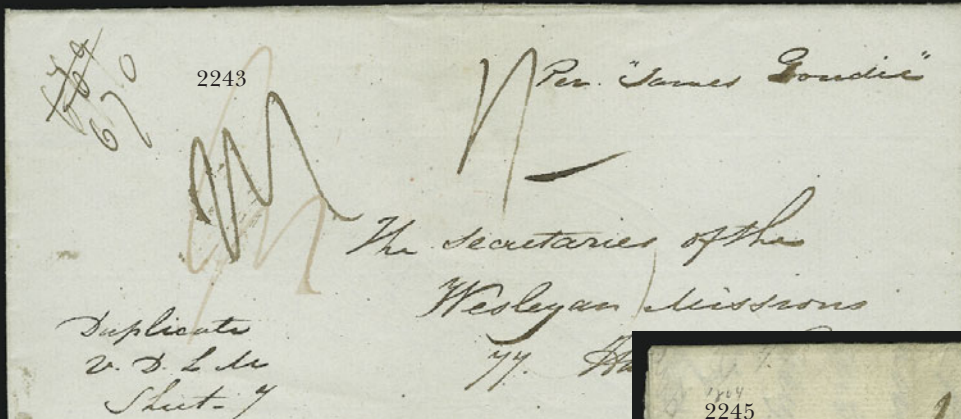 670
2243
Per. "James Goudie"
The Secretaries of the
Wesleyan Missions
77. Ha
Duplicate
V. D. L. M
Sheet-7
2245